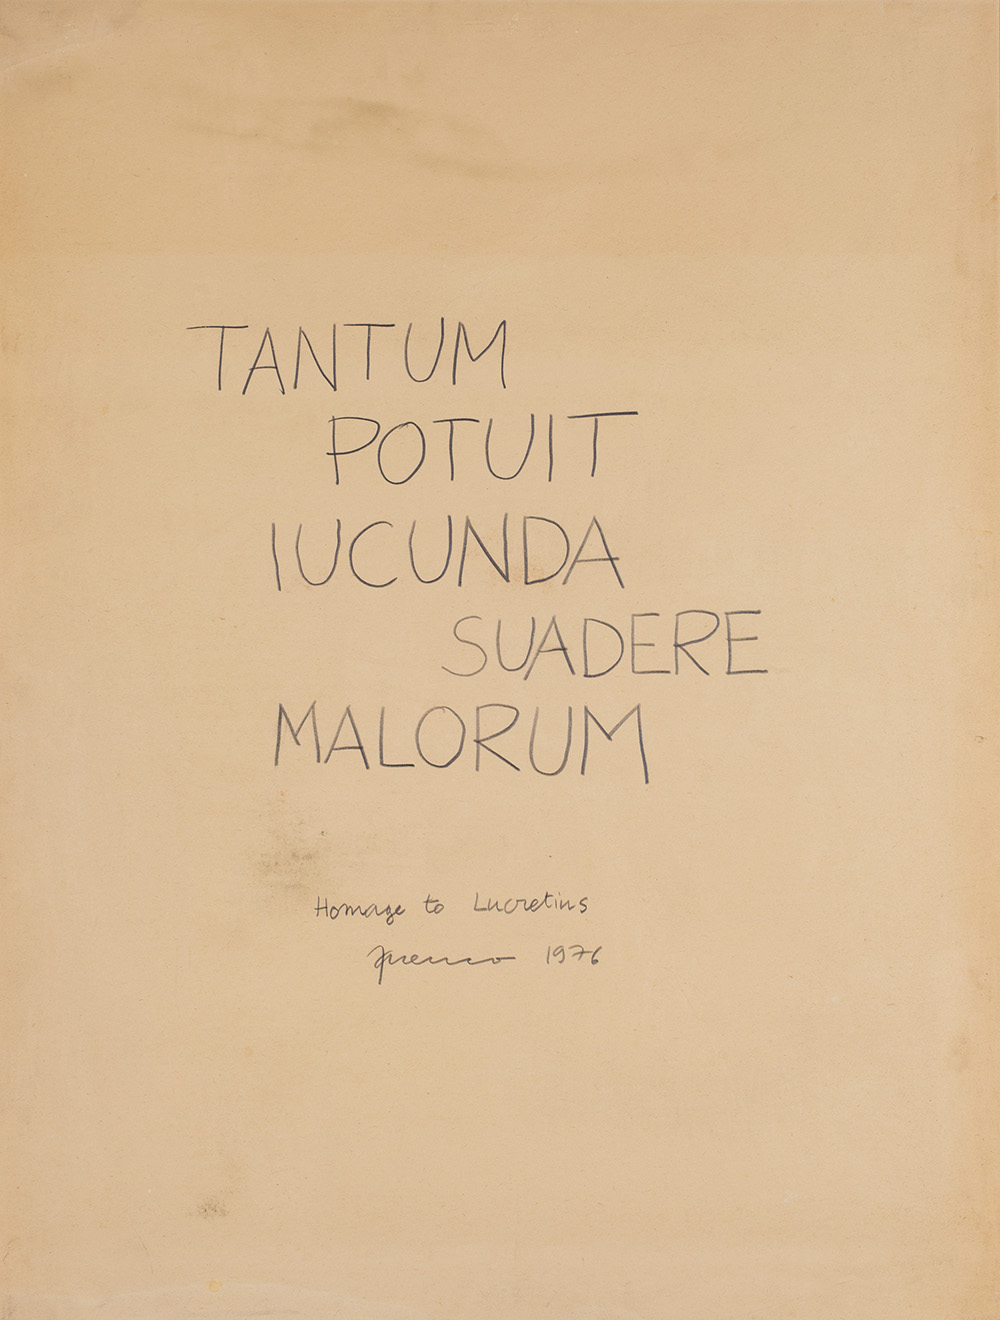 TANTUM
POTUIT
IUCUNDA
SUADERE
MALORUM
Homage to Lucretius
1976